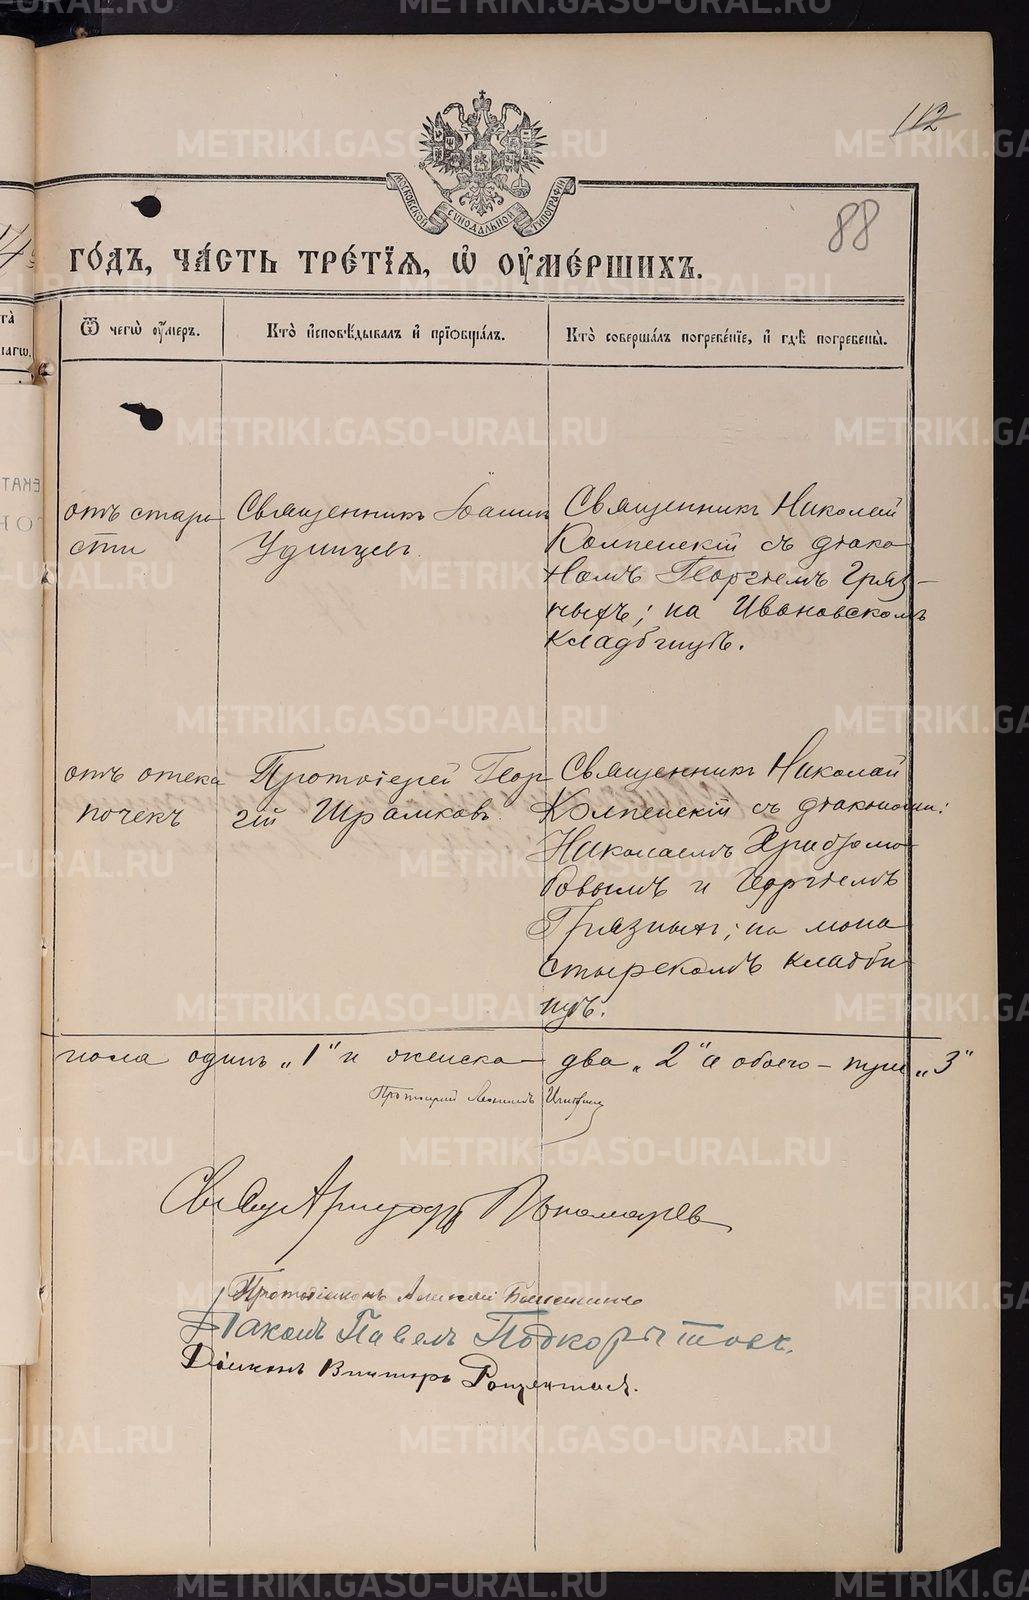 METRIKI.GASO-URAL.RU
112
МОСКОВСКОЙ СУНОДАЛЬНОЙ ТИПОГРАФІИ
88
ГО́ДЪ, ЧА́СТЬ ТРЕ́ТІѦ, Ѡ҆ ОУ҆МЕ́РШИХЪ.
Ѿ чегѡ̀ оу҆́меръ.
Кто̀ и҆сповѣ́дывалъ и҆ прїѡбща́лъ.
Кто̀ соверша́лъ погребе́нїе, и҆ гдѣ̀ погребены̀.
отъ старо
сти
Священникъ Іоаннъ
Удинцевъ
Священникъ Николай
Колпенскій съ діако
номъ Георгіемъ Гряз-
ныхъ; на Ивановскомъ
кладбищѣ.
отъ отека
почекъ
Протоіерей Геор
гій Шрамковъ
Священникъ Николай
Колпенскій съ діаконами:
Николаемъ
и Георгіемъ
Грязныхъ; на мона
стырскомъ кладби
щѣ.
пола одинъ „1" и женска- два „2" а обоего- три „3"
Протоіерей Леонидъ Игноратовъ
Свящ Пономаревъ
Протодіаконъ Алексій
Діаконъ Павелъ Подкорытовъ.
Діаконъ Викторъ